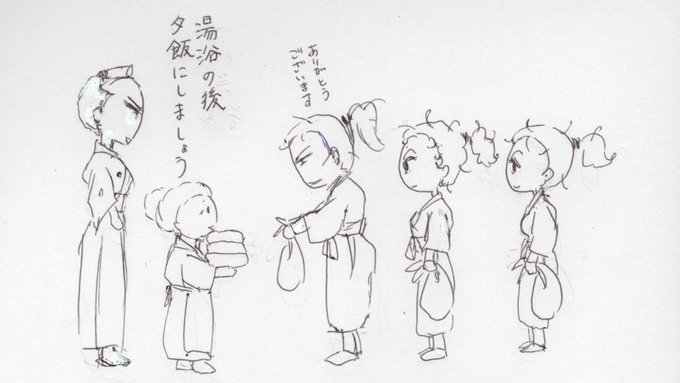 湯浴の後
夕飯にしましょう
ありがとう
ございます